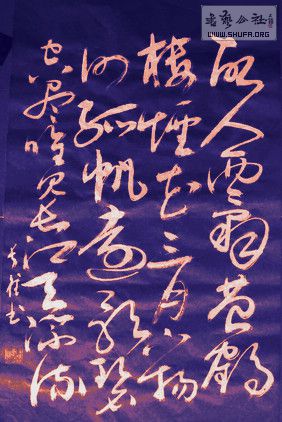 書藝公社
WWW.SHUFA.ORG
故人西辭黃鶴
樓煙花三月下揚
州孤帆遠影碧
空盡唯見長江天際流